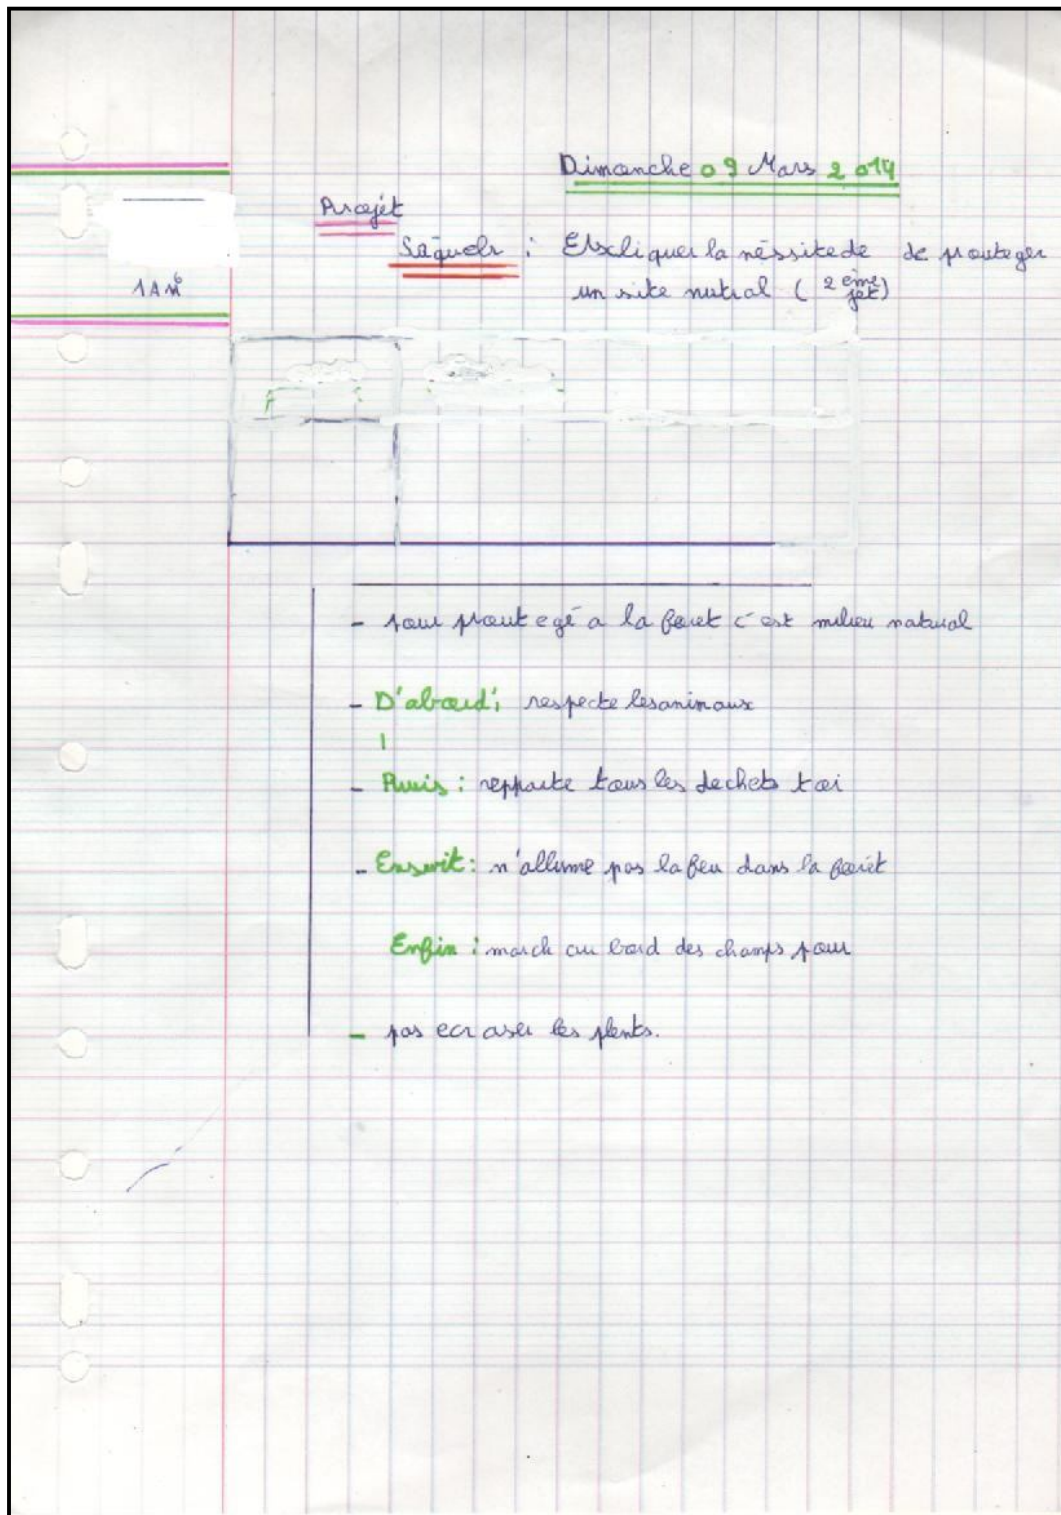 Dimanche 09 Mars 2014
Projét
Séquels : Exscliquer la nèssitede de prouteger
1AM6
un site nutral (2ème jet)
- pour prout egé a la foret c'est milieu natural
- D'abord: respecte lesanimaux
- Puuis : repporte tous les dechets toi
- Ensuit : n'allume pas la feu dans la forét
Enfin : march au bord des champs pour
- pas ecraser les plents.